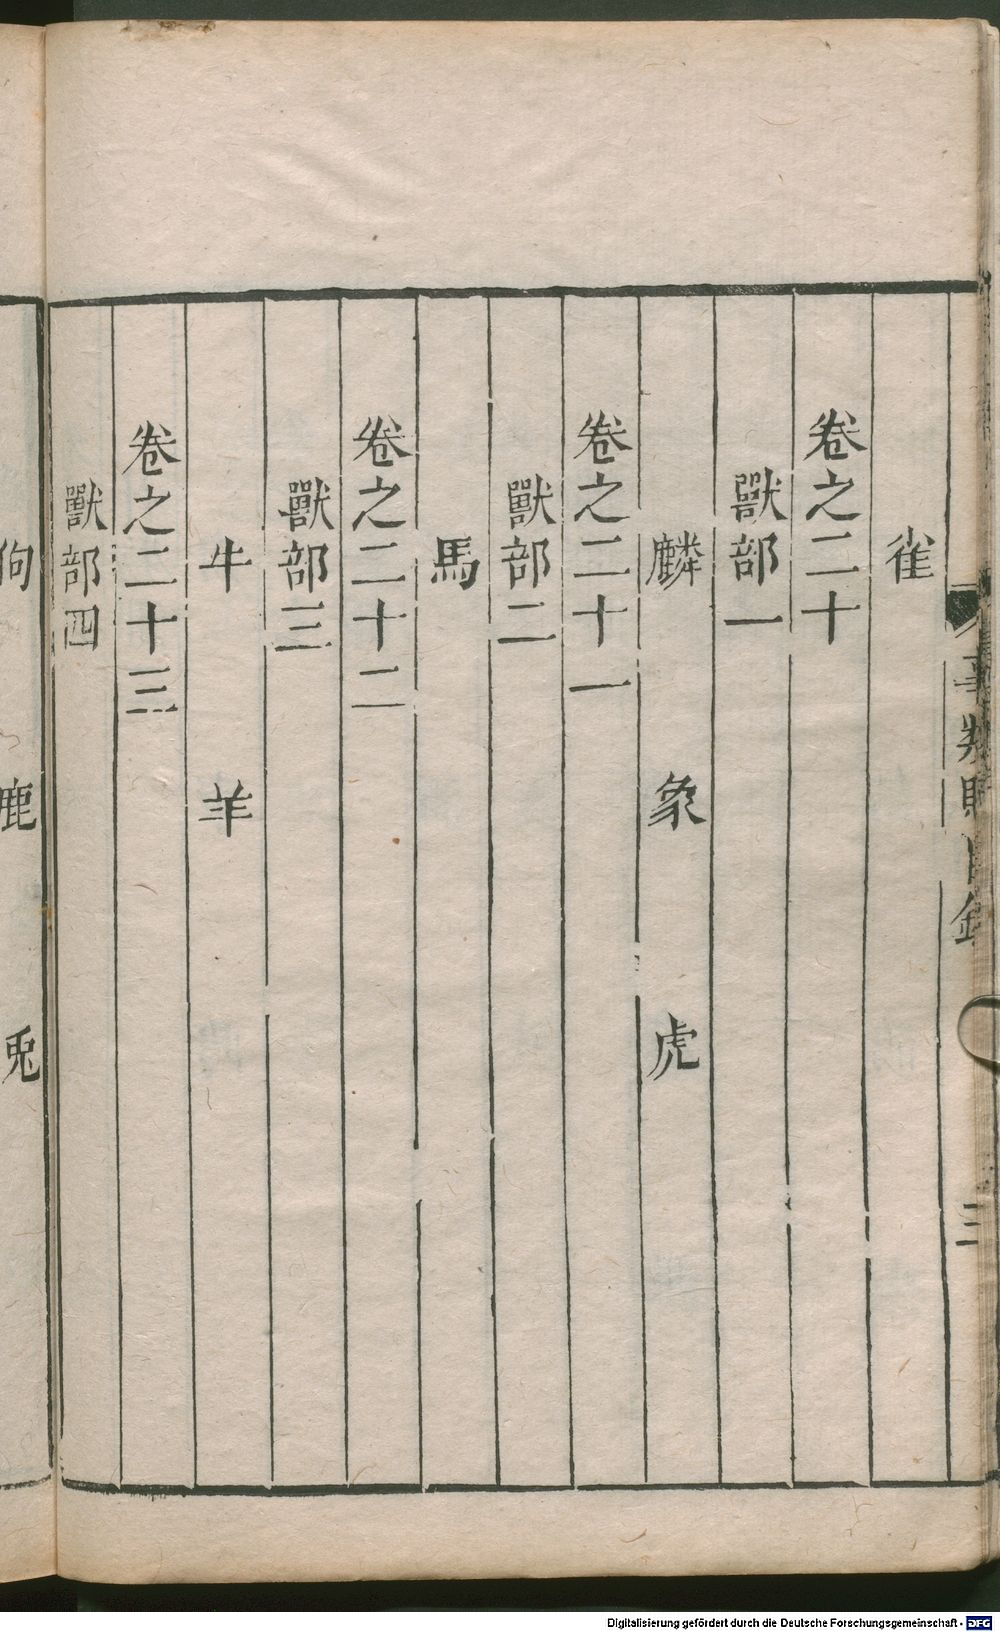 事類賦目錄
三
雀
卷之二十
獸部一
麟 象 虎
卷之二十一
獸部二
馬
卷之二十二
獸部三
牛 羊
卷之二十三
獸部四
狗 鹿 兎
Digitalisierung gefördert durch die Deutsche Forschungsgemeinschaft - DFG